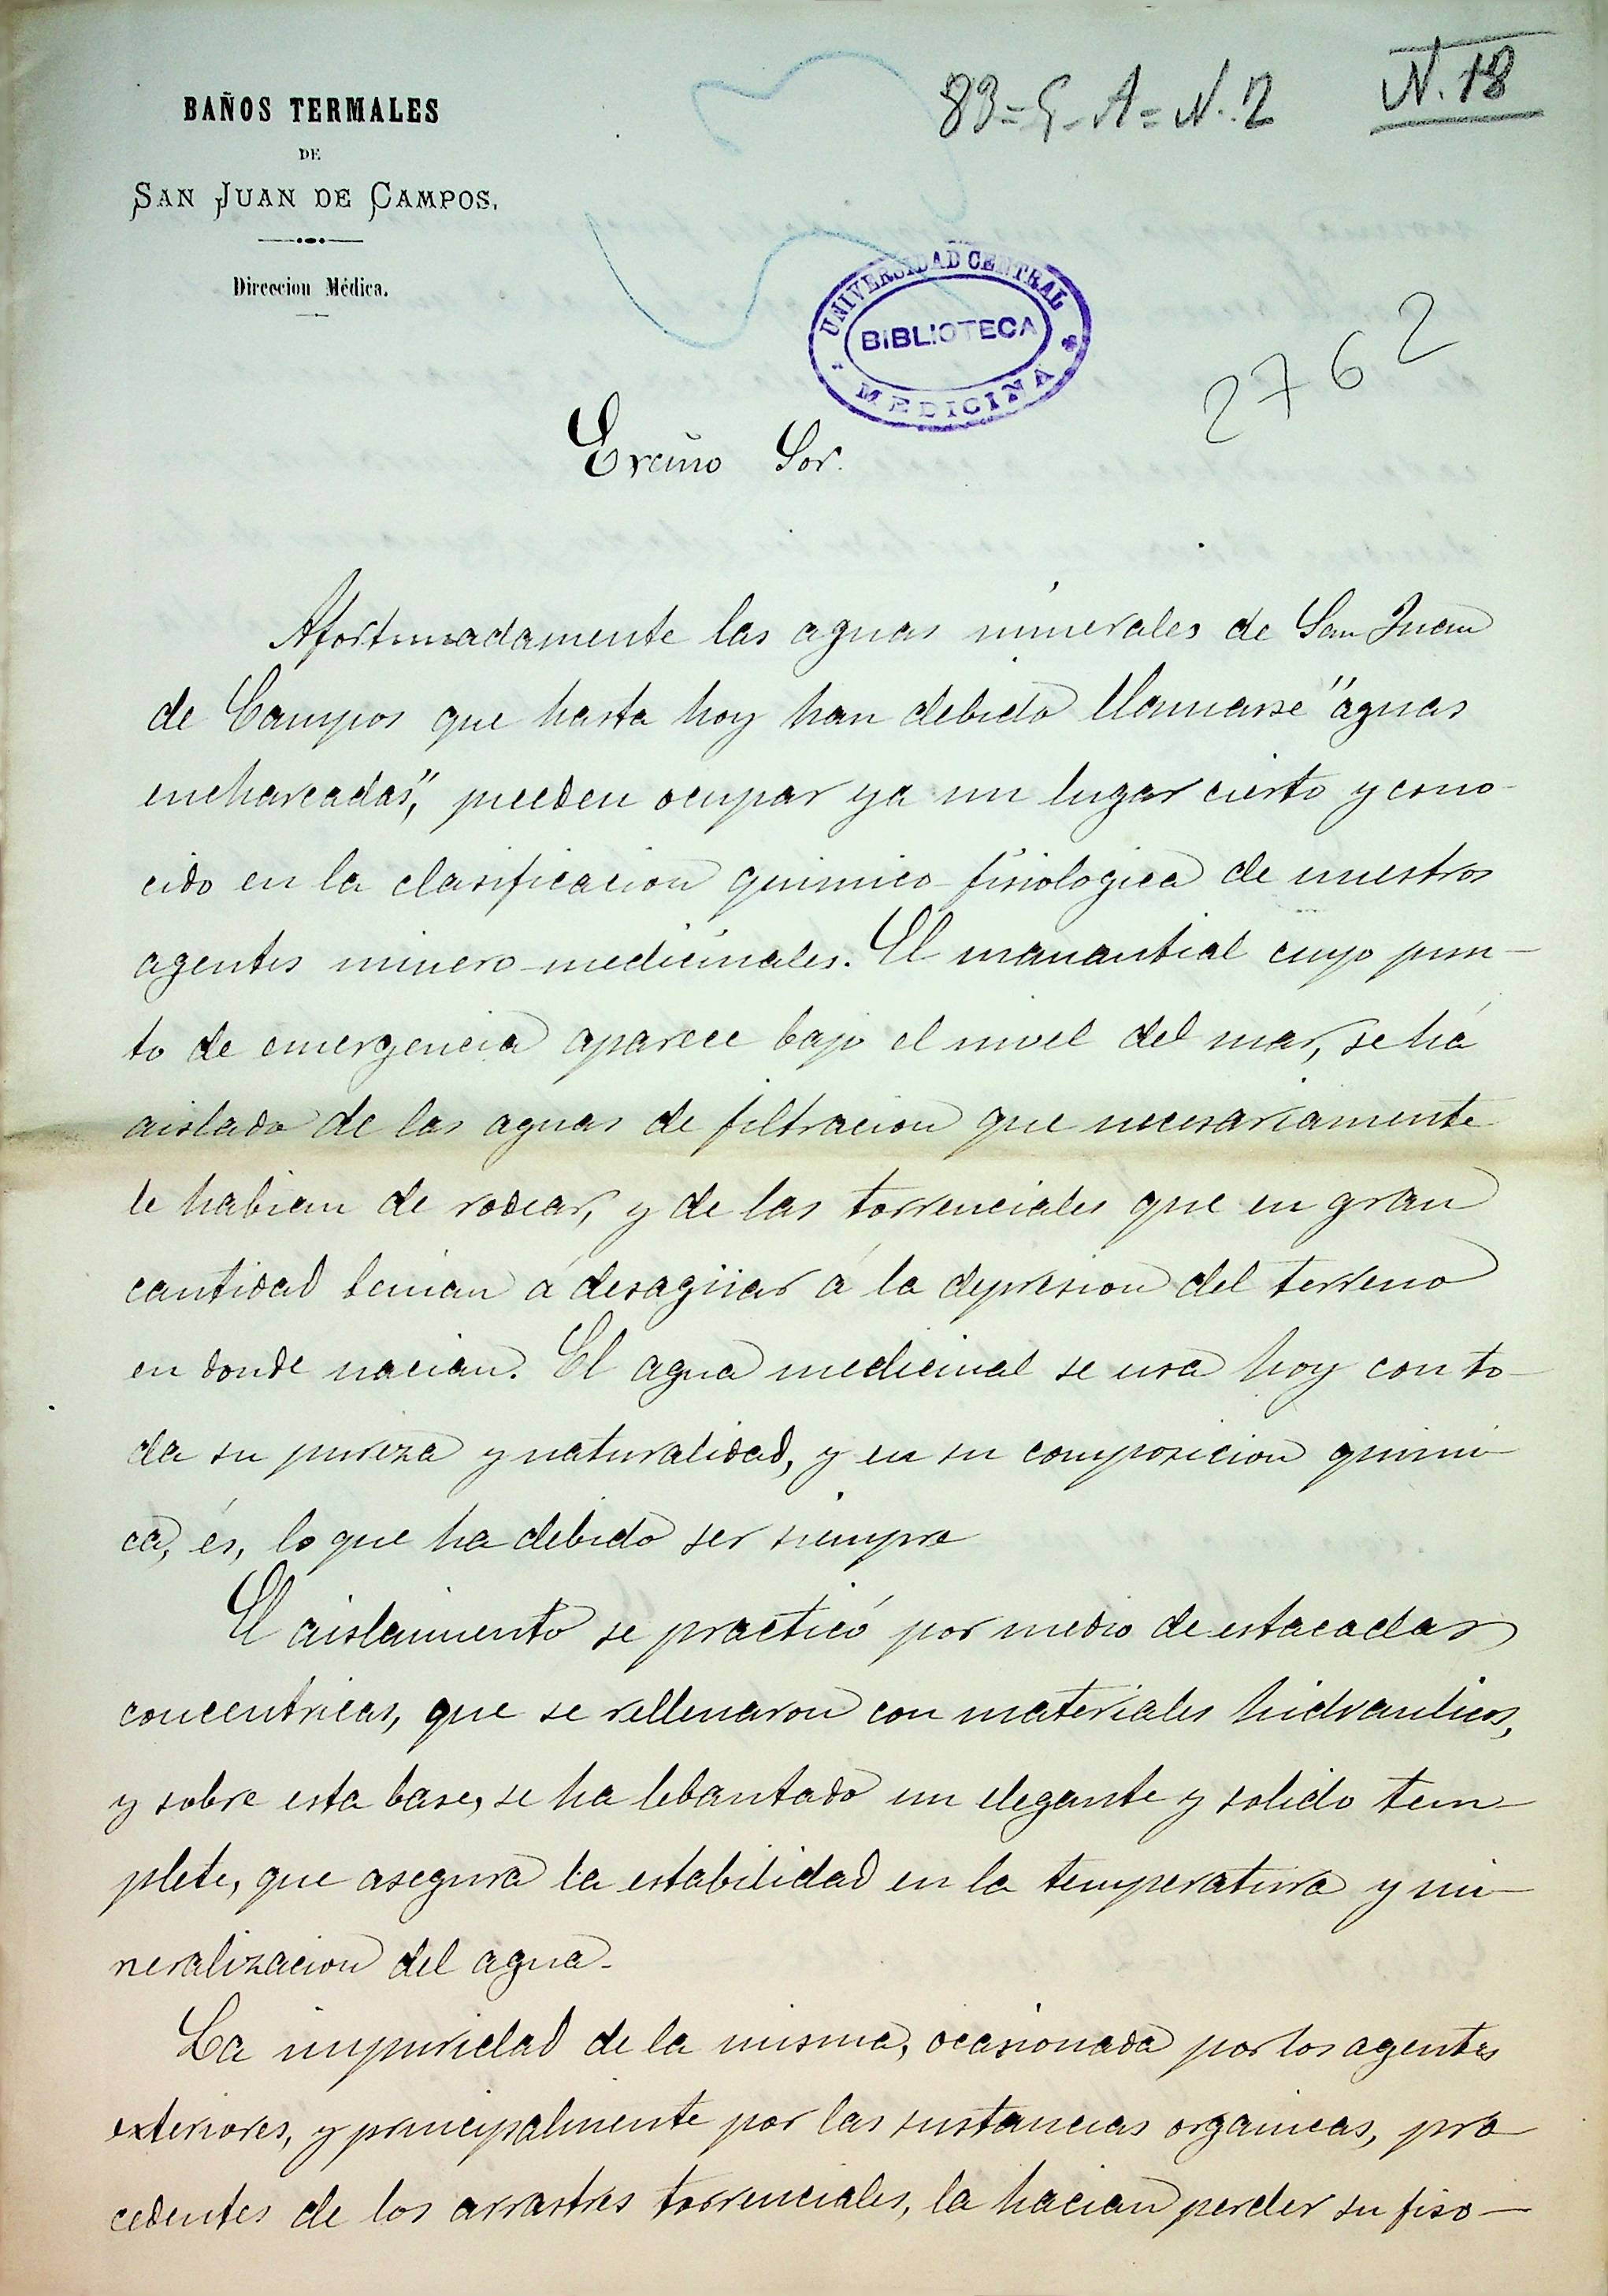 BAÑOS TERMALES
DE
SAN JUAN DE CAMPOS.
Direccion Médica.
83=G-A=N.2
N.18
UNIVERSIDAD CENTRAL
BIBLIOTECA
MEDICINA
2762
Excmo Sor.
Afortunadamente las aguas minerales de San Juan
de Campos que hasta hoy han debido llamarse "aguas
encharcadas", pueden ocupar ya un lugar cierto y cono-
cido en la clasificacion quimico-fisiologica de nuestros
agentes minero-medicinales. El manantial cuyo pun-
to de emergencia aparece bajo el nivel del mar, se há
aislado de las aguas de filtracion que necesariamente
le habian de rodear, y de las torrenciales que en gran
cantidad benian á desagüar á la depresion del terreno
en donde nacian. El agua medicinal se usa hoy con to-
da su pureza y naturalidad, y en su composicion quimi-
ca, és, lo que ha debido ser siempre
El aislamiento se practicó por medio de estacadas
concentricas, que se rellenaron con materiales hidraulicos,
y sobre esta base, se ha lebantado un elegante y solido tem-
plete, que asegura la estabilidad en la temperatura y mi-
neralizacion del agua.
La impuridad de la misma, ocasionada por los agentes
exteriores, y principalmente por las sustancias organicas, pro
cedentes de los arrastres torrenciales, la hacian perder su fiso-